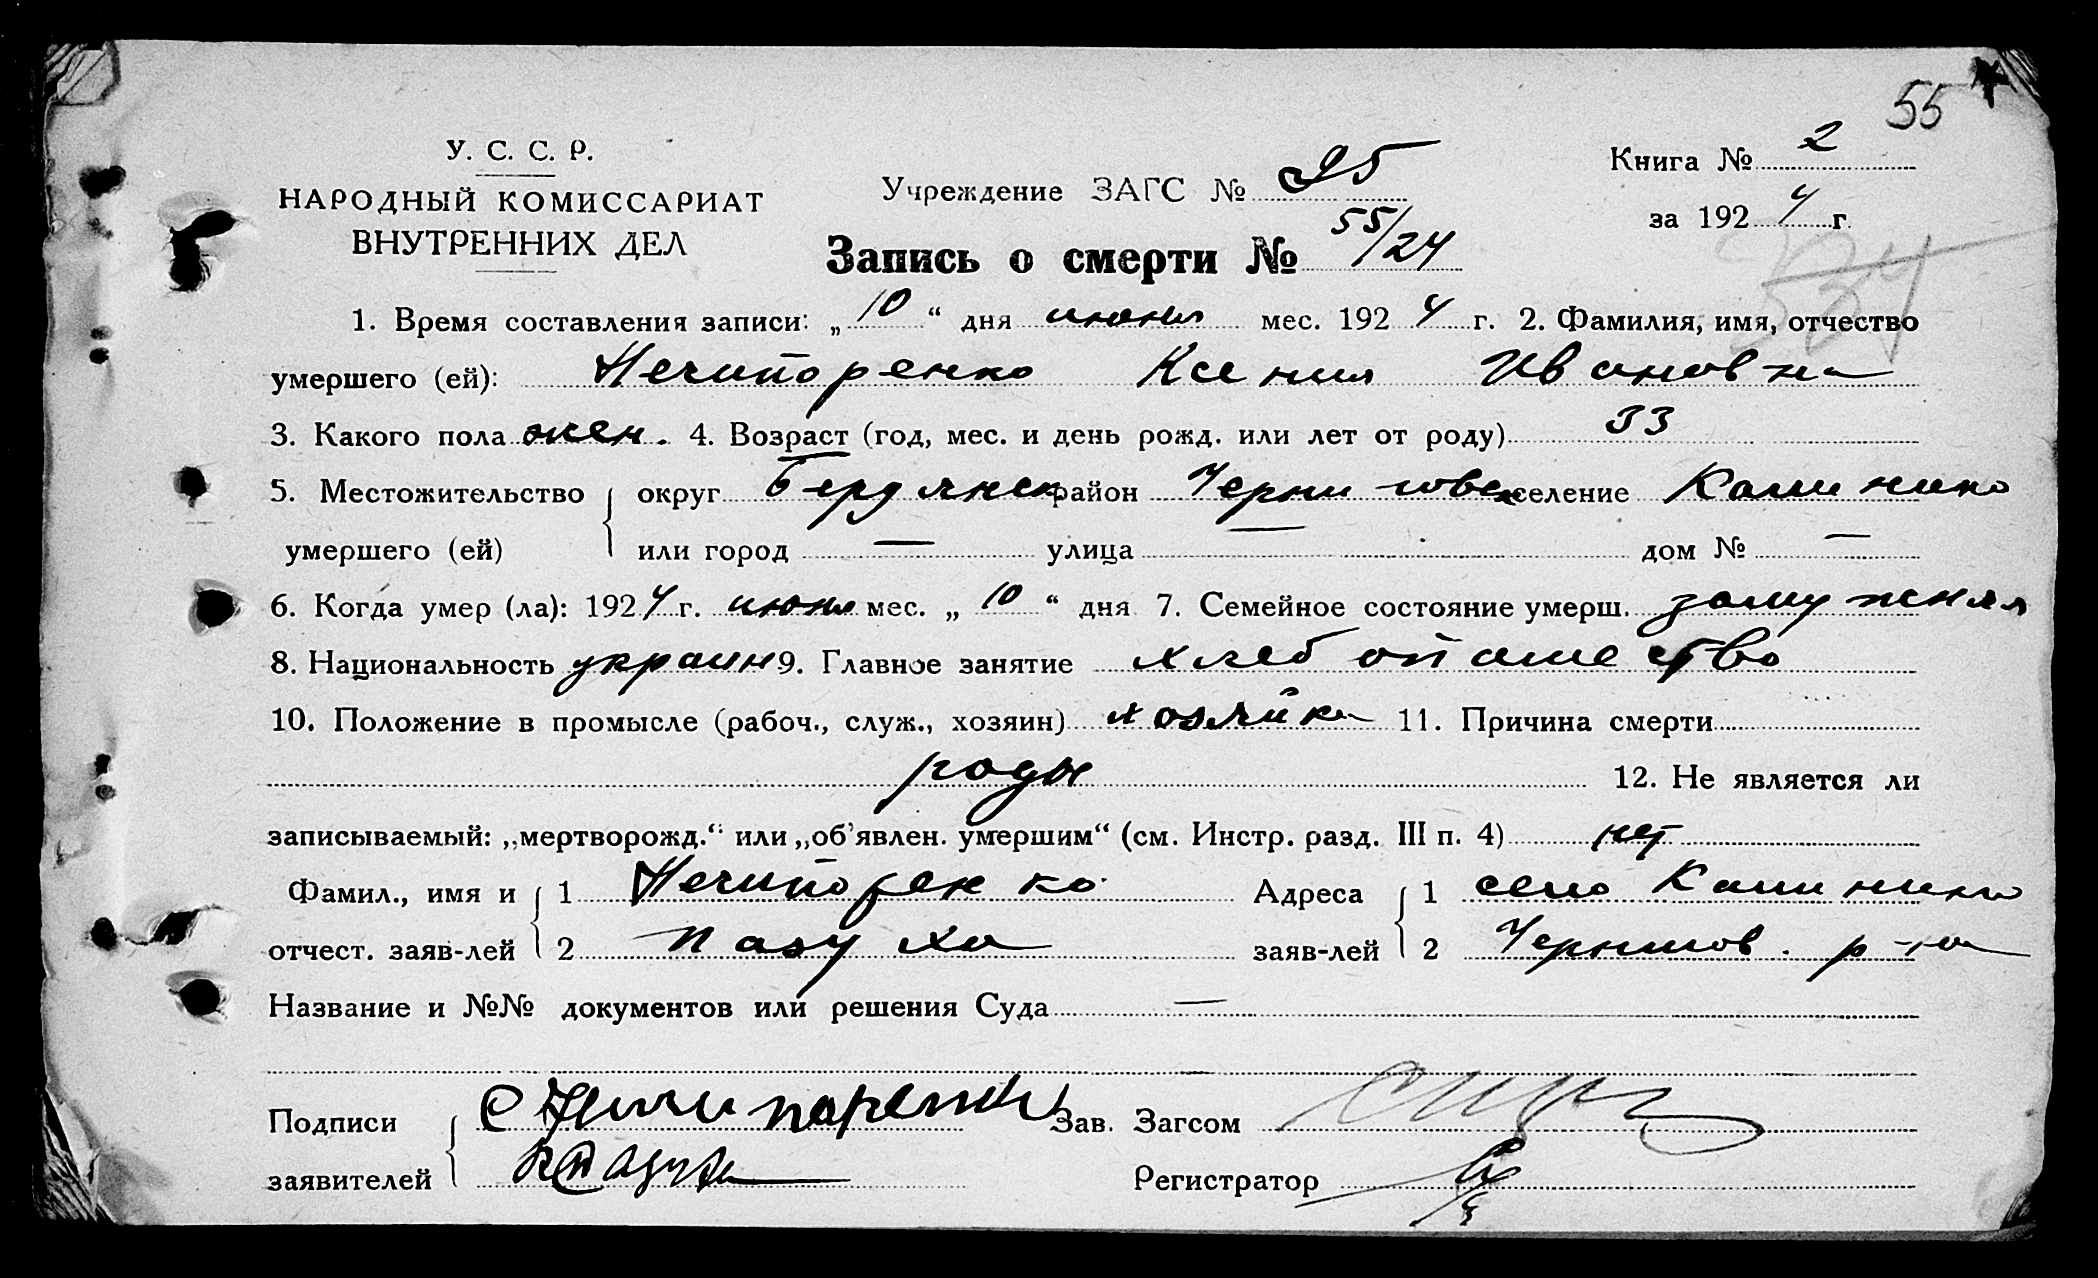 55
У. С. С. Р.
НАРОДНЫЙ КОМИССАРИАТ
ВНУТРЕННИХ ДЕЛ
Учреждение ЗАГС № 25
Книга № 2
за 1924 г.
Запись о смерти № 55/24
534
1. Время составления записи: „10“ дня июня мес. 1924 г. 2. Фамилия, имя, отчество
умершего (ей): Нечипоренко Ксения Ивановна
3. Какого пола жен. 4. Возраст (год, мес. и день рожд. или лет от роду) 33
5. Местожительство округ Бердянск район Черниговск селение Калиники
умершего (ей) или город — улица — дом № —
6. Когда умер (ла): 1924 г. июня мес. „10“ дня 7. Семейное состояние умерш. замужняя
8. Национальность украин 9. Главное занятие хлебопашество
10. Положение в промысле (рабоч., служ., хозяин) хозяйка 11. Причина смерти
роды 12. Не является ли
записываемый: „мертворожд.“ или „об'явлен. умершим“ (см. Инстр. разд. III п. 4) нет
Фамил., имя и 1 Нечипоренко Адреса 1 село
отчест. заяв-лей 2 Пазуха заяв-лей 2 Чернигов. р-на
Название и №№ документов или решения Суда —
Подписи С Зав. Загсом
заявителей Регистратор